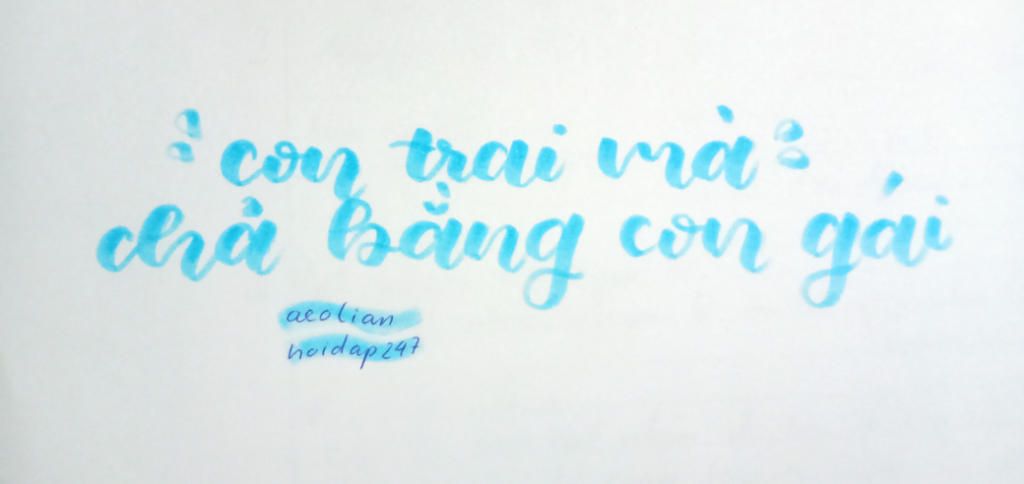 con trai mà
chả bằng con gái
aeolian
hoidap247